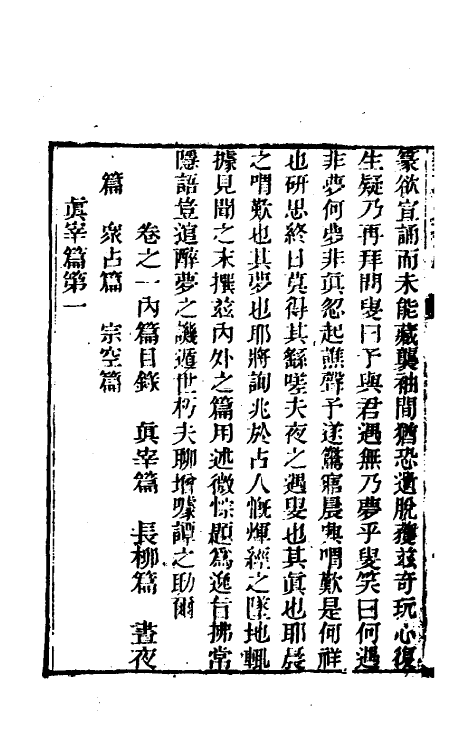 篆欲宣誦而未能藏襲袖間猶恐遺脫獲茲奇玩心復
生疑乃再拜問叟曰予與君遇無乃夢乎叟笑曰何遇
非夢何夢非眞忽起譙聲予遂驚寤晨興喟歎是何祥
也研思終日莫得其繇嗟夫夜之遇叟也其眞也耶晨
之喟歎也其夢也耶將詢兆於占人慨煇經之墜地輒
據見聞之末撰茲內外之篇用述微悰題爲逸旨拂常
隱語豈追醉夢之譏遁世朽夫聊增噱譚之助爾
卷之一內篇目錄　眞宰篇　長柳篇　晝夜
篇　衆占篇　宗空篇
眞宰篇第一